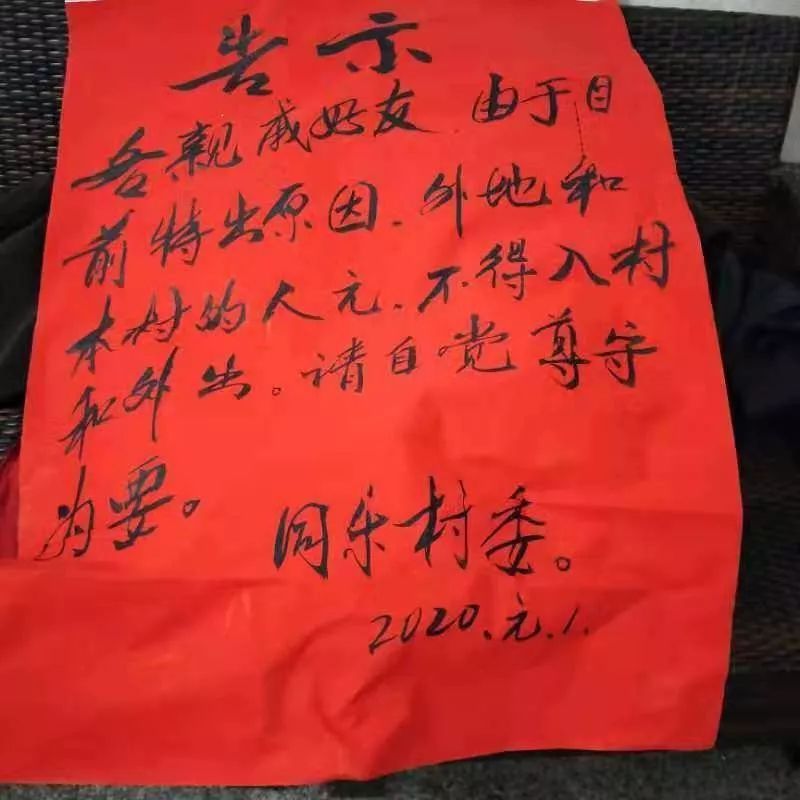 告示
各亲戚好友 由于目
前特出原因、外地和
本村的人元、不得入村
和外出。请自觉尊守
为要。
同乐村委。
2020.元.1.